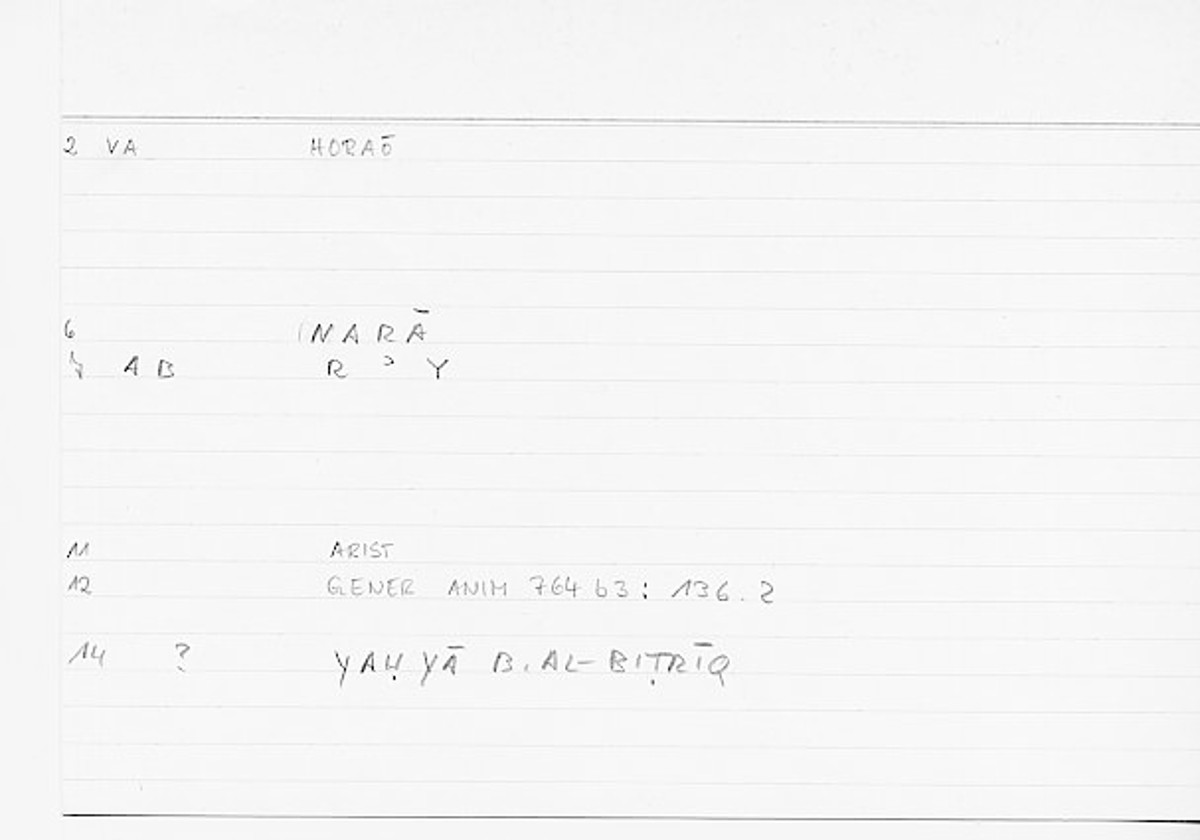 2 VA HORAŌ
6 NARĀ
AB R ʾ Y
11 ARIST
12 GENER ANIM 764 b3 : 136.2
14 ? YAḤYĀ B. AL-BIṬRĪQ